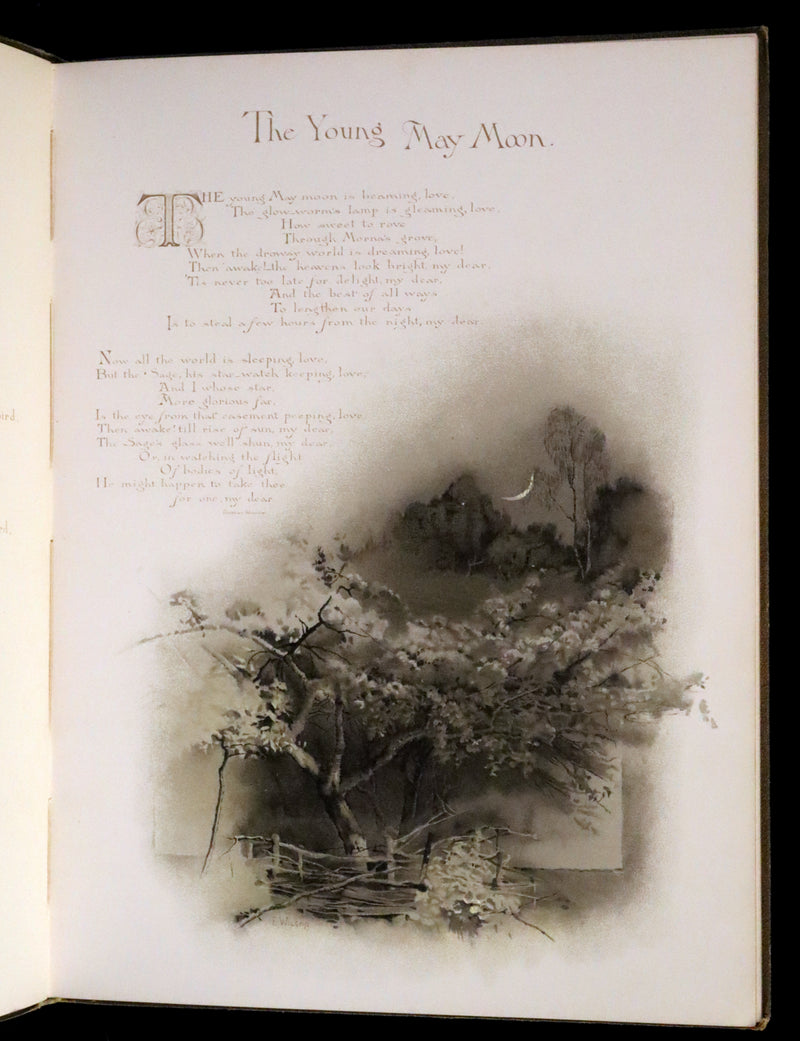 The Young May Moon.
THE young May moon is beaming, love,
The glow-worm's lamp is gleaming, love,
How sweet to rove
Through Morna's grove,
When the drowsy world is dreaming, love!
Then awake!_the heavens look bright, my dear,
'Tis never too late for delight, my dear,
And the best of all ways
To lengthen our days
Is to steal a few hours from the night, my dear.
Now all the world is sleeping, love,
But the Sage, his star-watch keeping, love,
And I whose star,
More glorious far,
Is the eye from that casement peeping, love.
Then awake! till rise of sun, my dear,
The Sage's glass we'll shun, my dear,
Or, in watching the flight
Of bodies of light,
He might happen to take thee
for one, my dear.
Thomas Moore